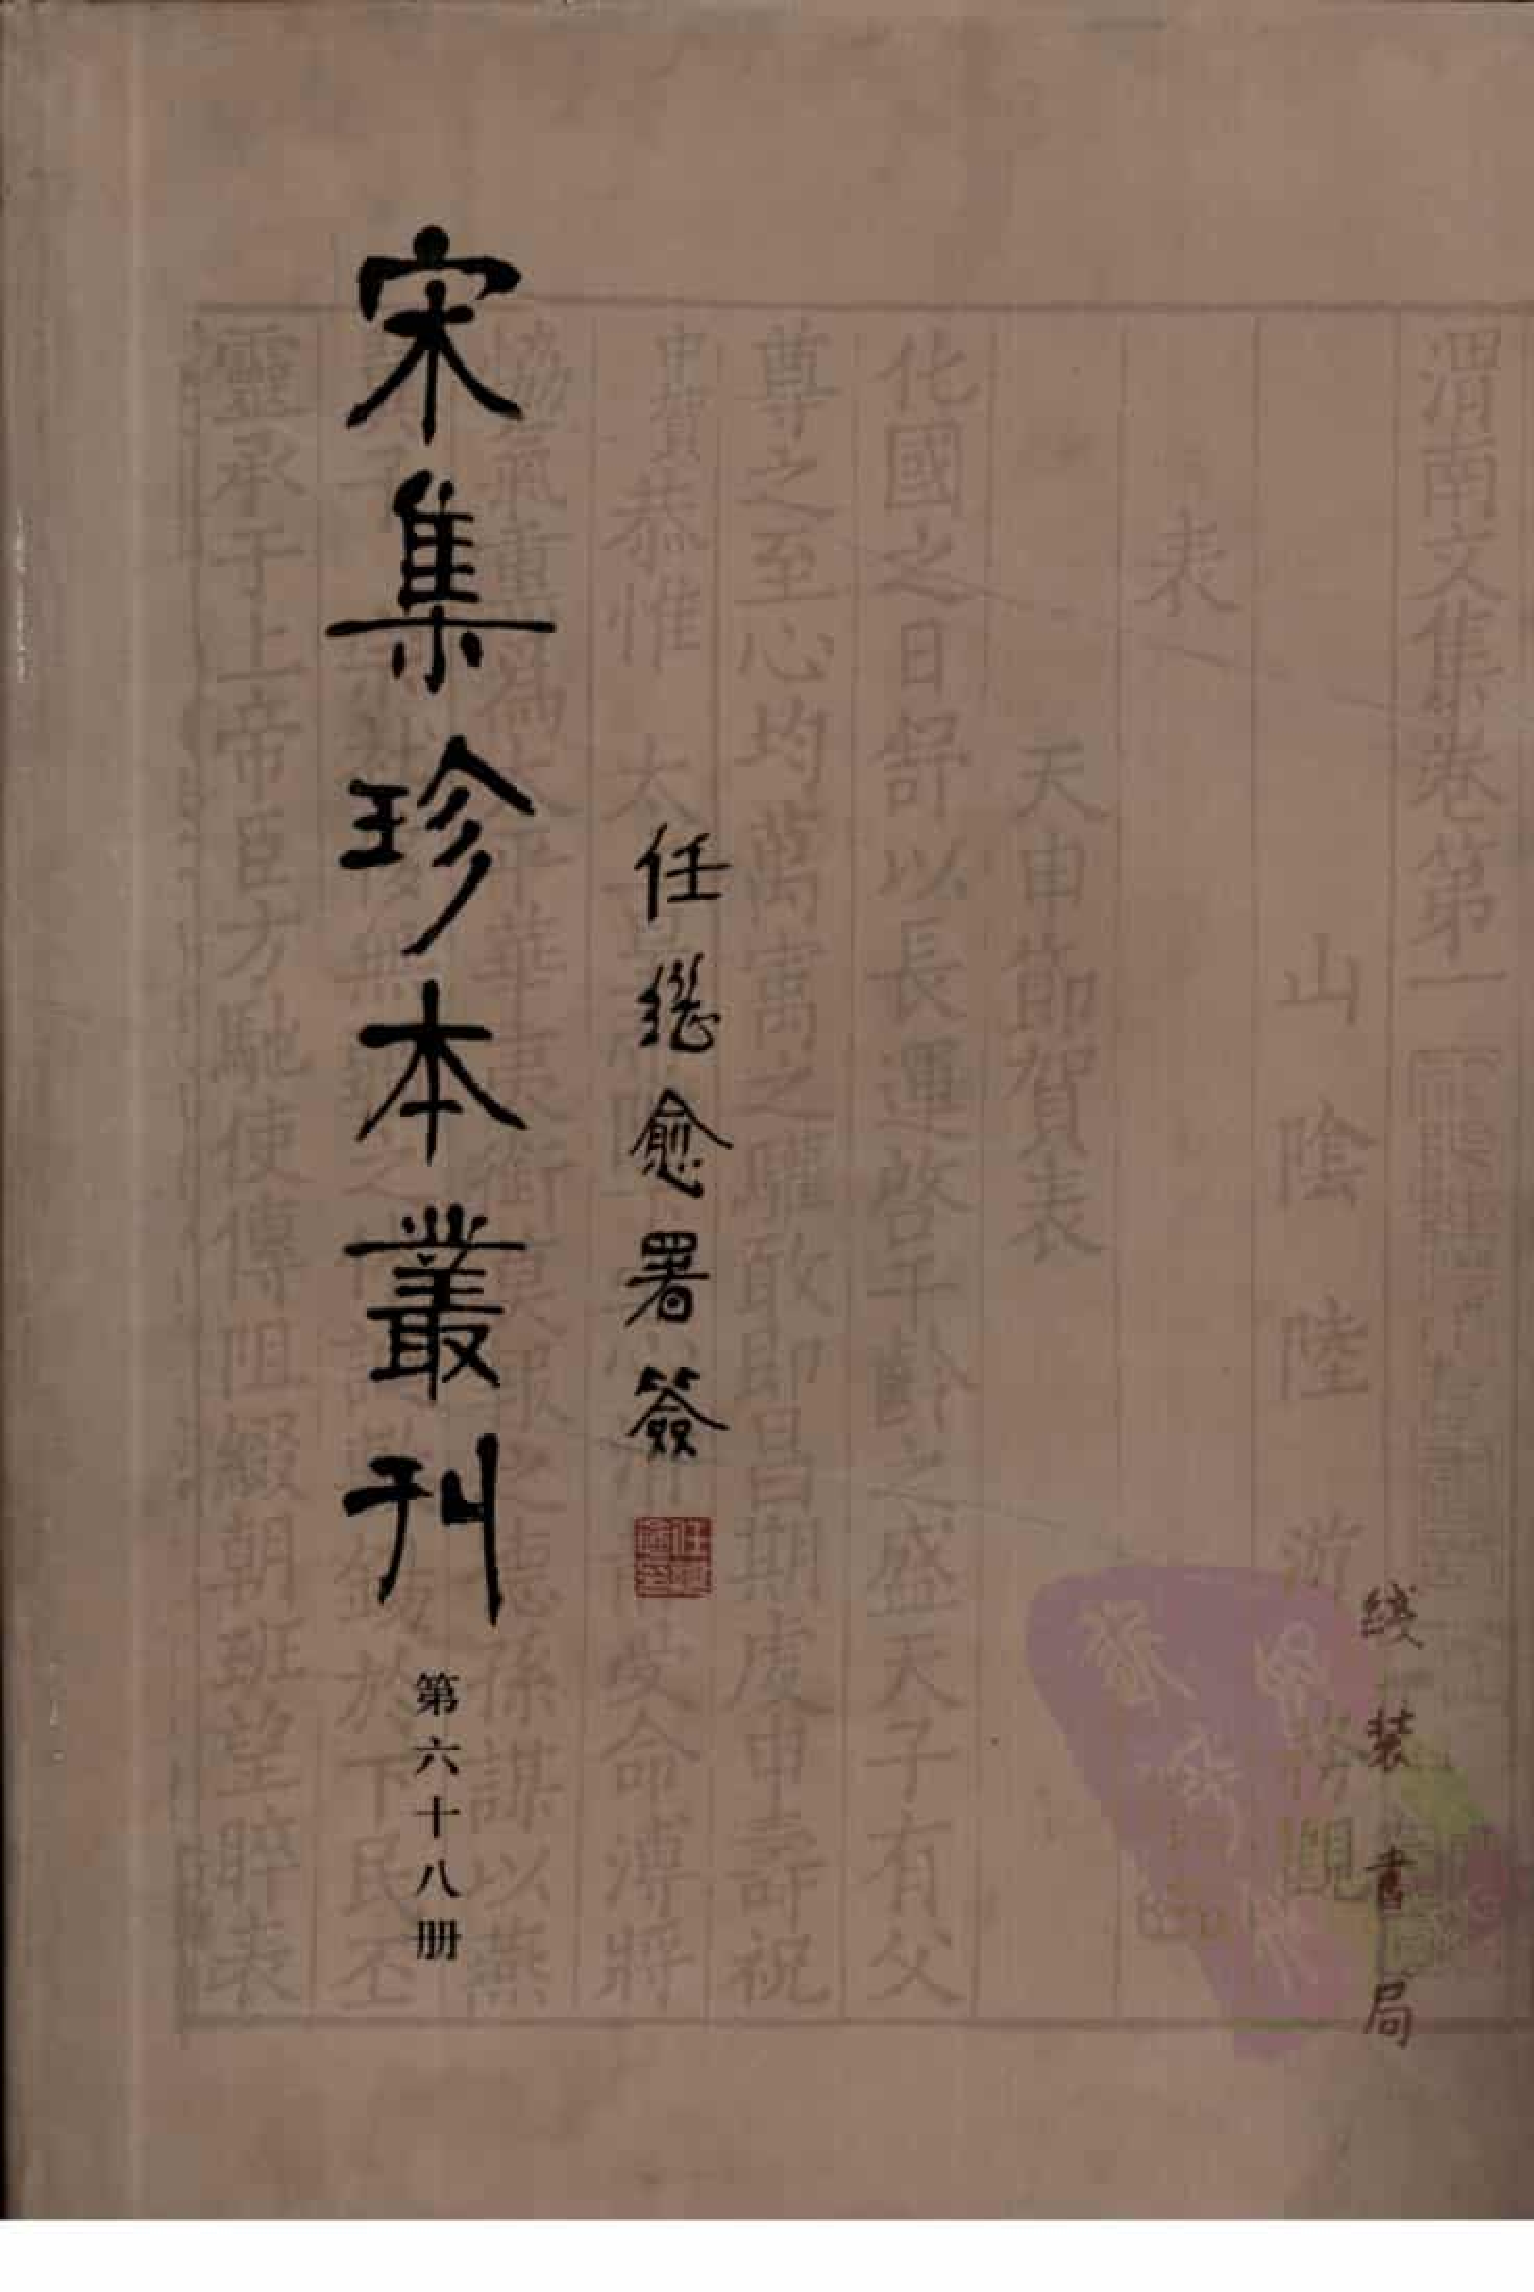 宋集珍本叢刊
第六十八册
任继愈署簽
线装書局
渭南文集卷第一
山陰陸游
表
天申節賀表
化國之日舒以長運啓千齡之盛天子有父
尊之至心均萬寓之驩敢即昌期虔申壽祝
中賀恭惟 太
受命溥將
孫謀以燕
於下民丕
靈承于上帝臣方馳使傳阻綴朝班望睟表